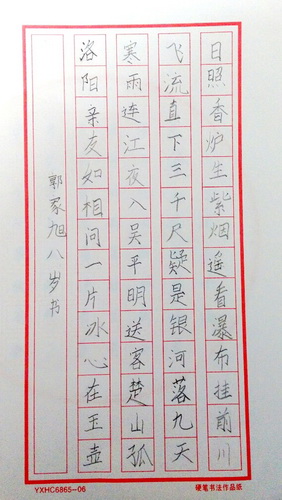 日照香炉生紫烟遥看瀑布挂前川
飞流直下三千尺疑是银河落九天
寒雨连江夜入吴平明送客楚山孤
洛阳亲友如相问一片冰心在玉壶
郭家旭八岁书
YXHC6865-06
硬笔书法作品纸